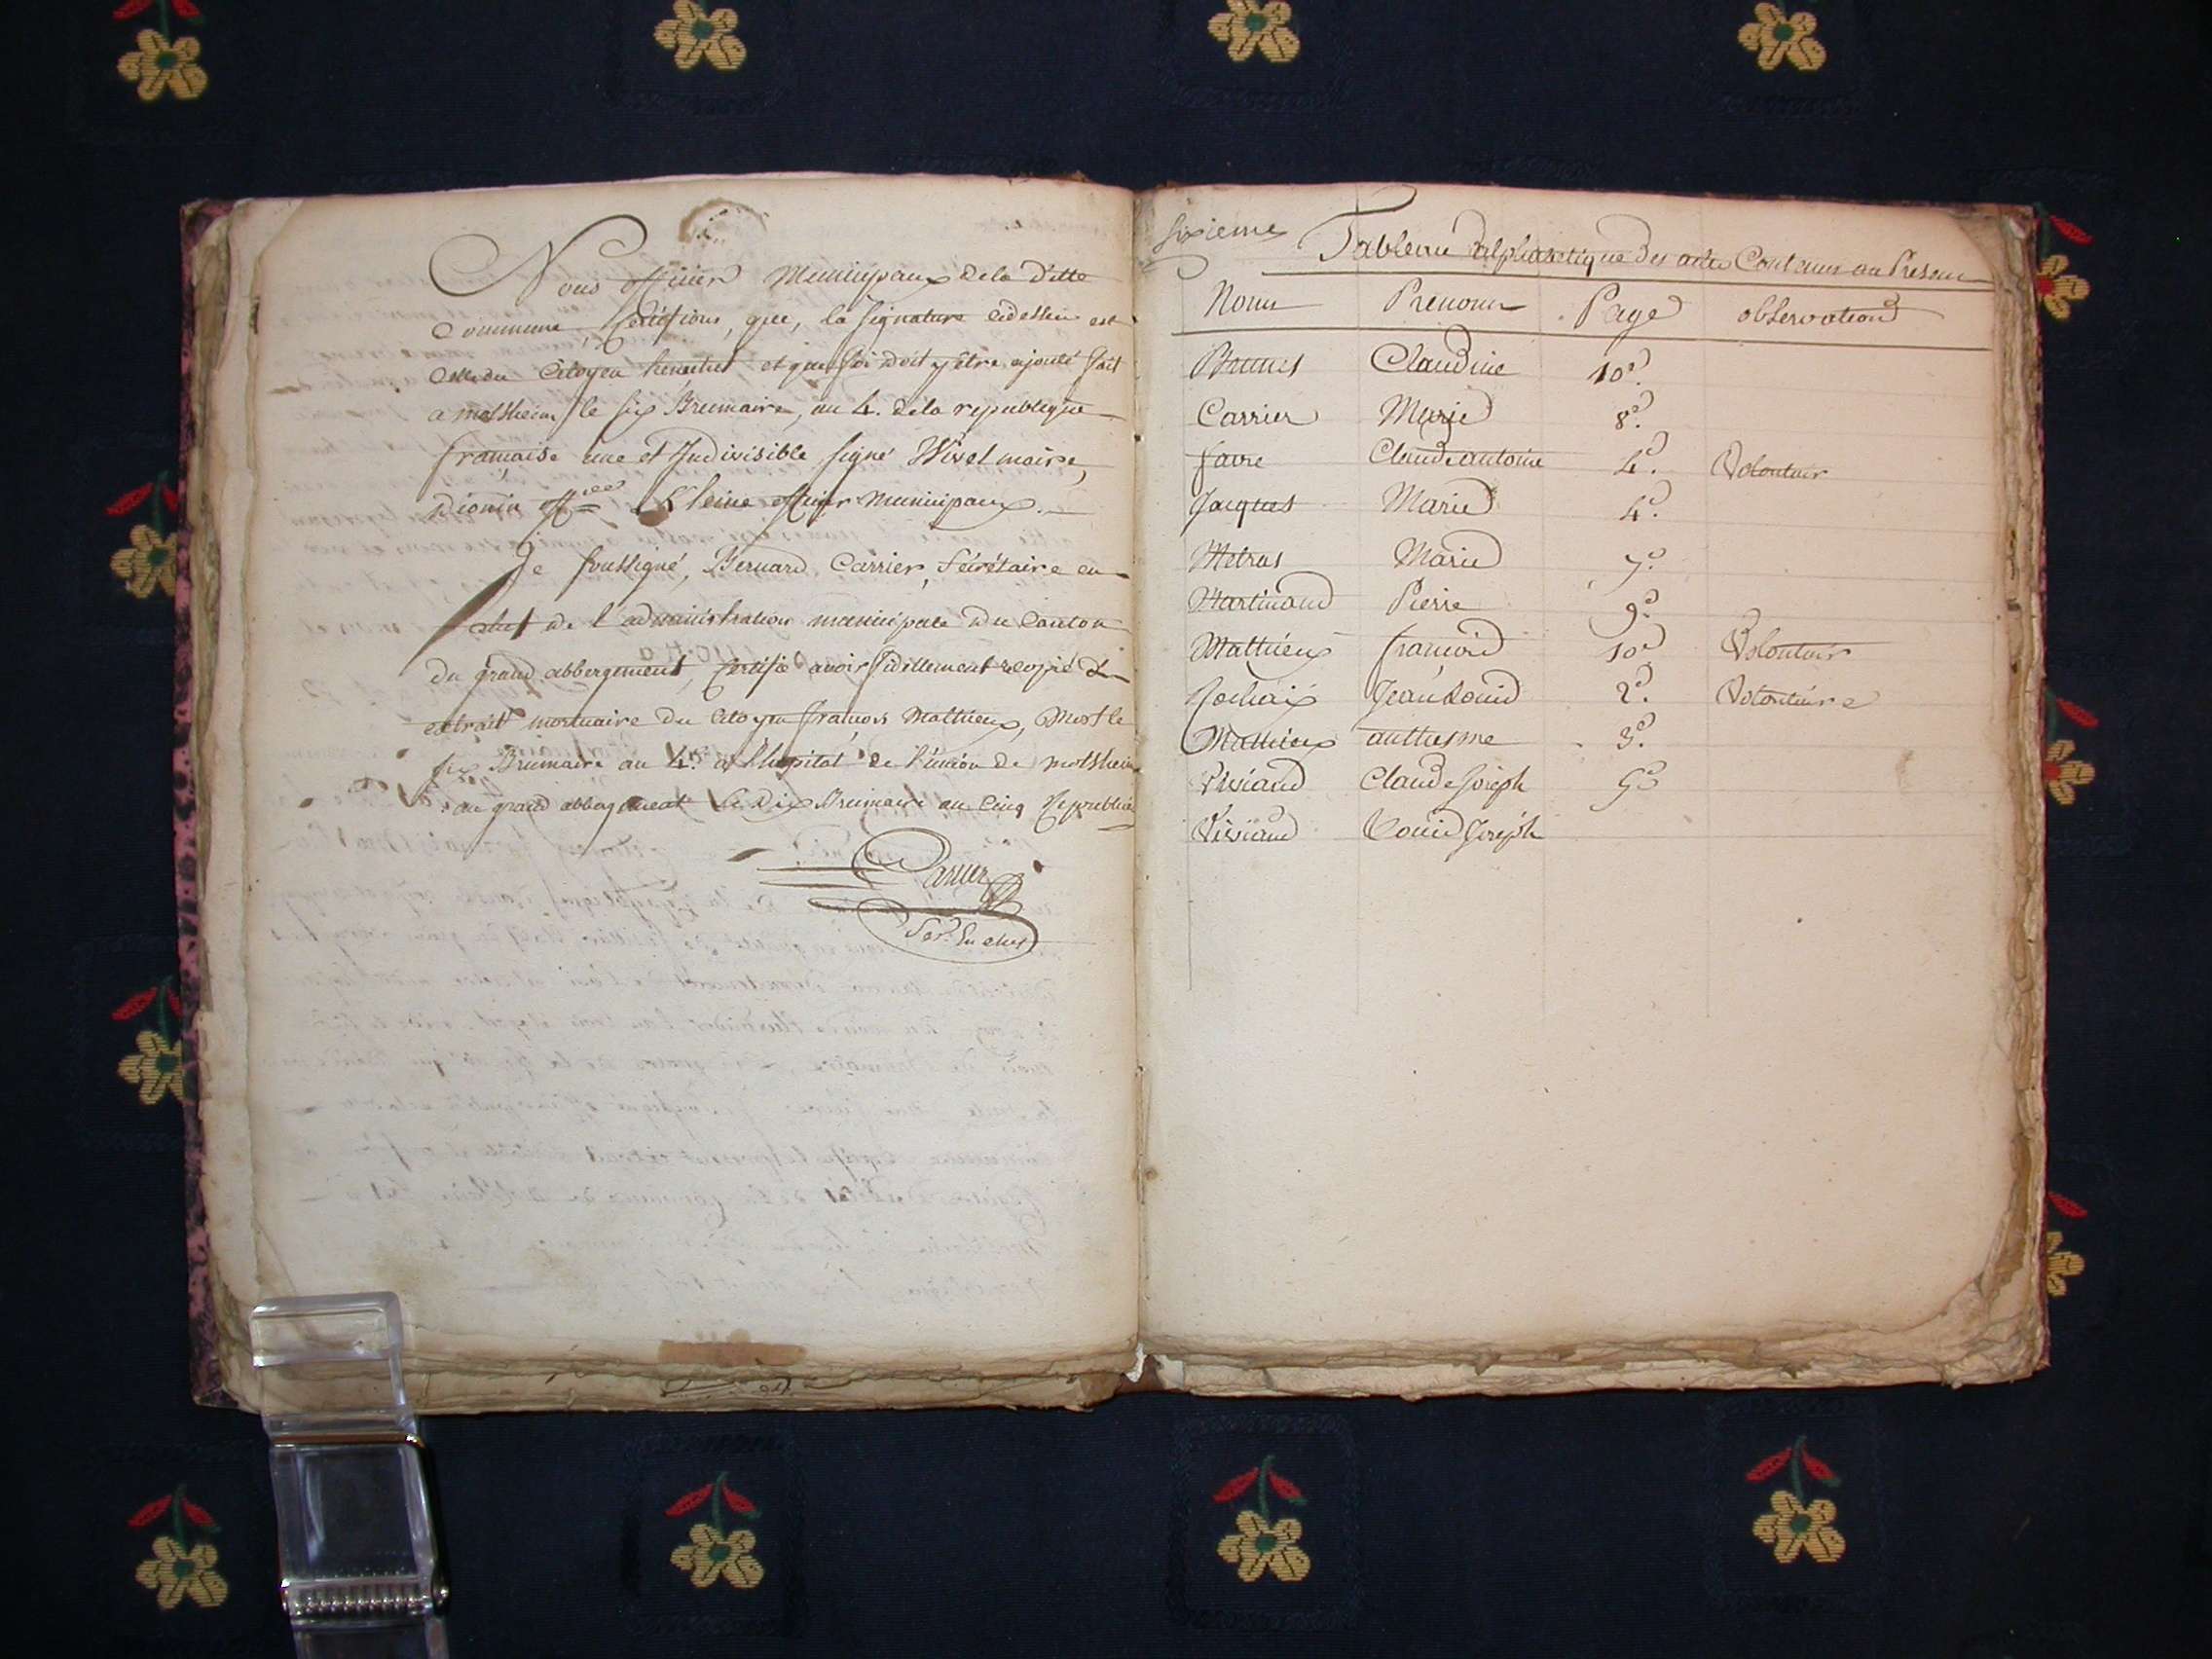 Nous officier Municipaux de la ditte
Commune, Certifions, que, la signature cidessus est
celle du Citoyen et que foi doit y être ajouté fait
a molsheim le six Brumaire, an 4. de la republique
française une et Indivisible signé maire,
Kleine officier Municipaux.
Je soussigné, Bernard Carrier, Sécrétaire en
chef de l'administration municipale du Canton
du grand abbergement, Certifie avoir fidellement recopié
extrait mortuaire du Citoyen françois Mathieux, Mort le
six Brumaire an 4.e a l'hopital de l'union de molsheim
au grand abbergement le dix Brumaire an Cinq Republic
Carrier
Ser. En chef
Sixieme
Tableau alphabetique des actes Contenus au Present
Noms Prenoms Page observations
Brunet Claudine 10e.
Carrier Marie 8e.
favre Claude antoine 4e. Volontair
Jacques Marie 4e.
Metras Marie 7e.
Martinand Pierre 9e.
Mathieux françois 10e Volontair
Rochaix Jean Louis 2e. Volontaire
Mathieux anthesme 3e.
Claude Joseph 5e
Louis Joseph